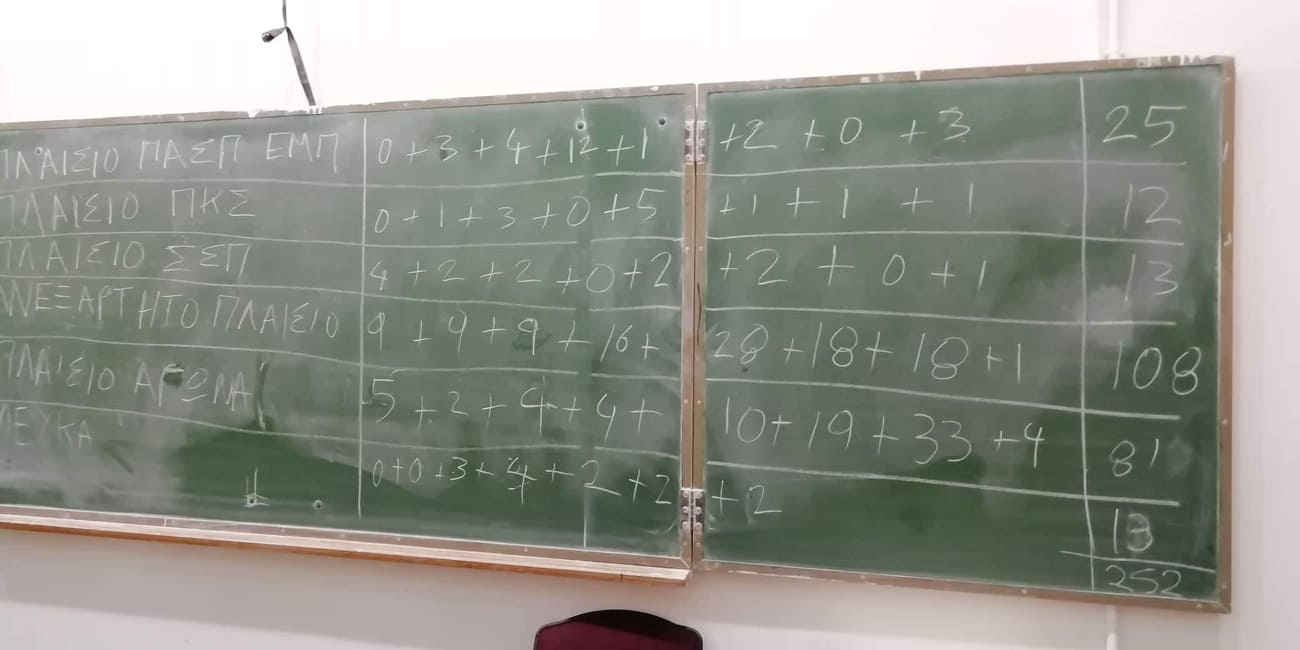 ΠΛΑΙΣΙΟ ΠΑΣΠ ΕΜΠ 0 + 3 + 4 + 12 + 1 + 2 + 0 + 3 25
ΠΛΑΙΣΙΟ ΠΚΣ 0 + 1 + 3 + 0 + 5 + 1 + 1 + 1 12
ΠΛΑΙΣΙΟ ΣΣΠ 4 + 2 + 2 + 0 + 2 + 2 + 0 + 1 13
ΑΝΕΞΑΡΤΗΤΟ ΠΛΑΙΣΙΟ 9 + 9 + 9 + 16 + 28 + 18 + 18 + 1 108
ΠΛΑΙΣΙΟ 5 + 2 + 4 + 4 + 10 + 19 + 33 + 4 81
ΛΕΥΚΑ 0 + 0 + 3 + 4 + 2 + 2 + 2 13
252